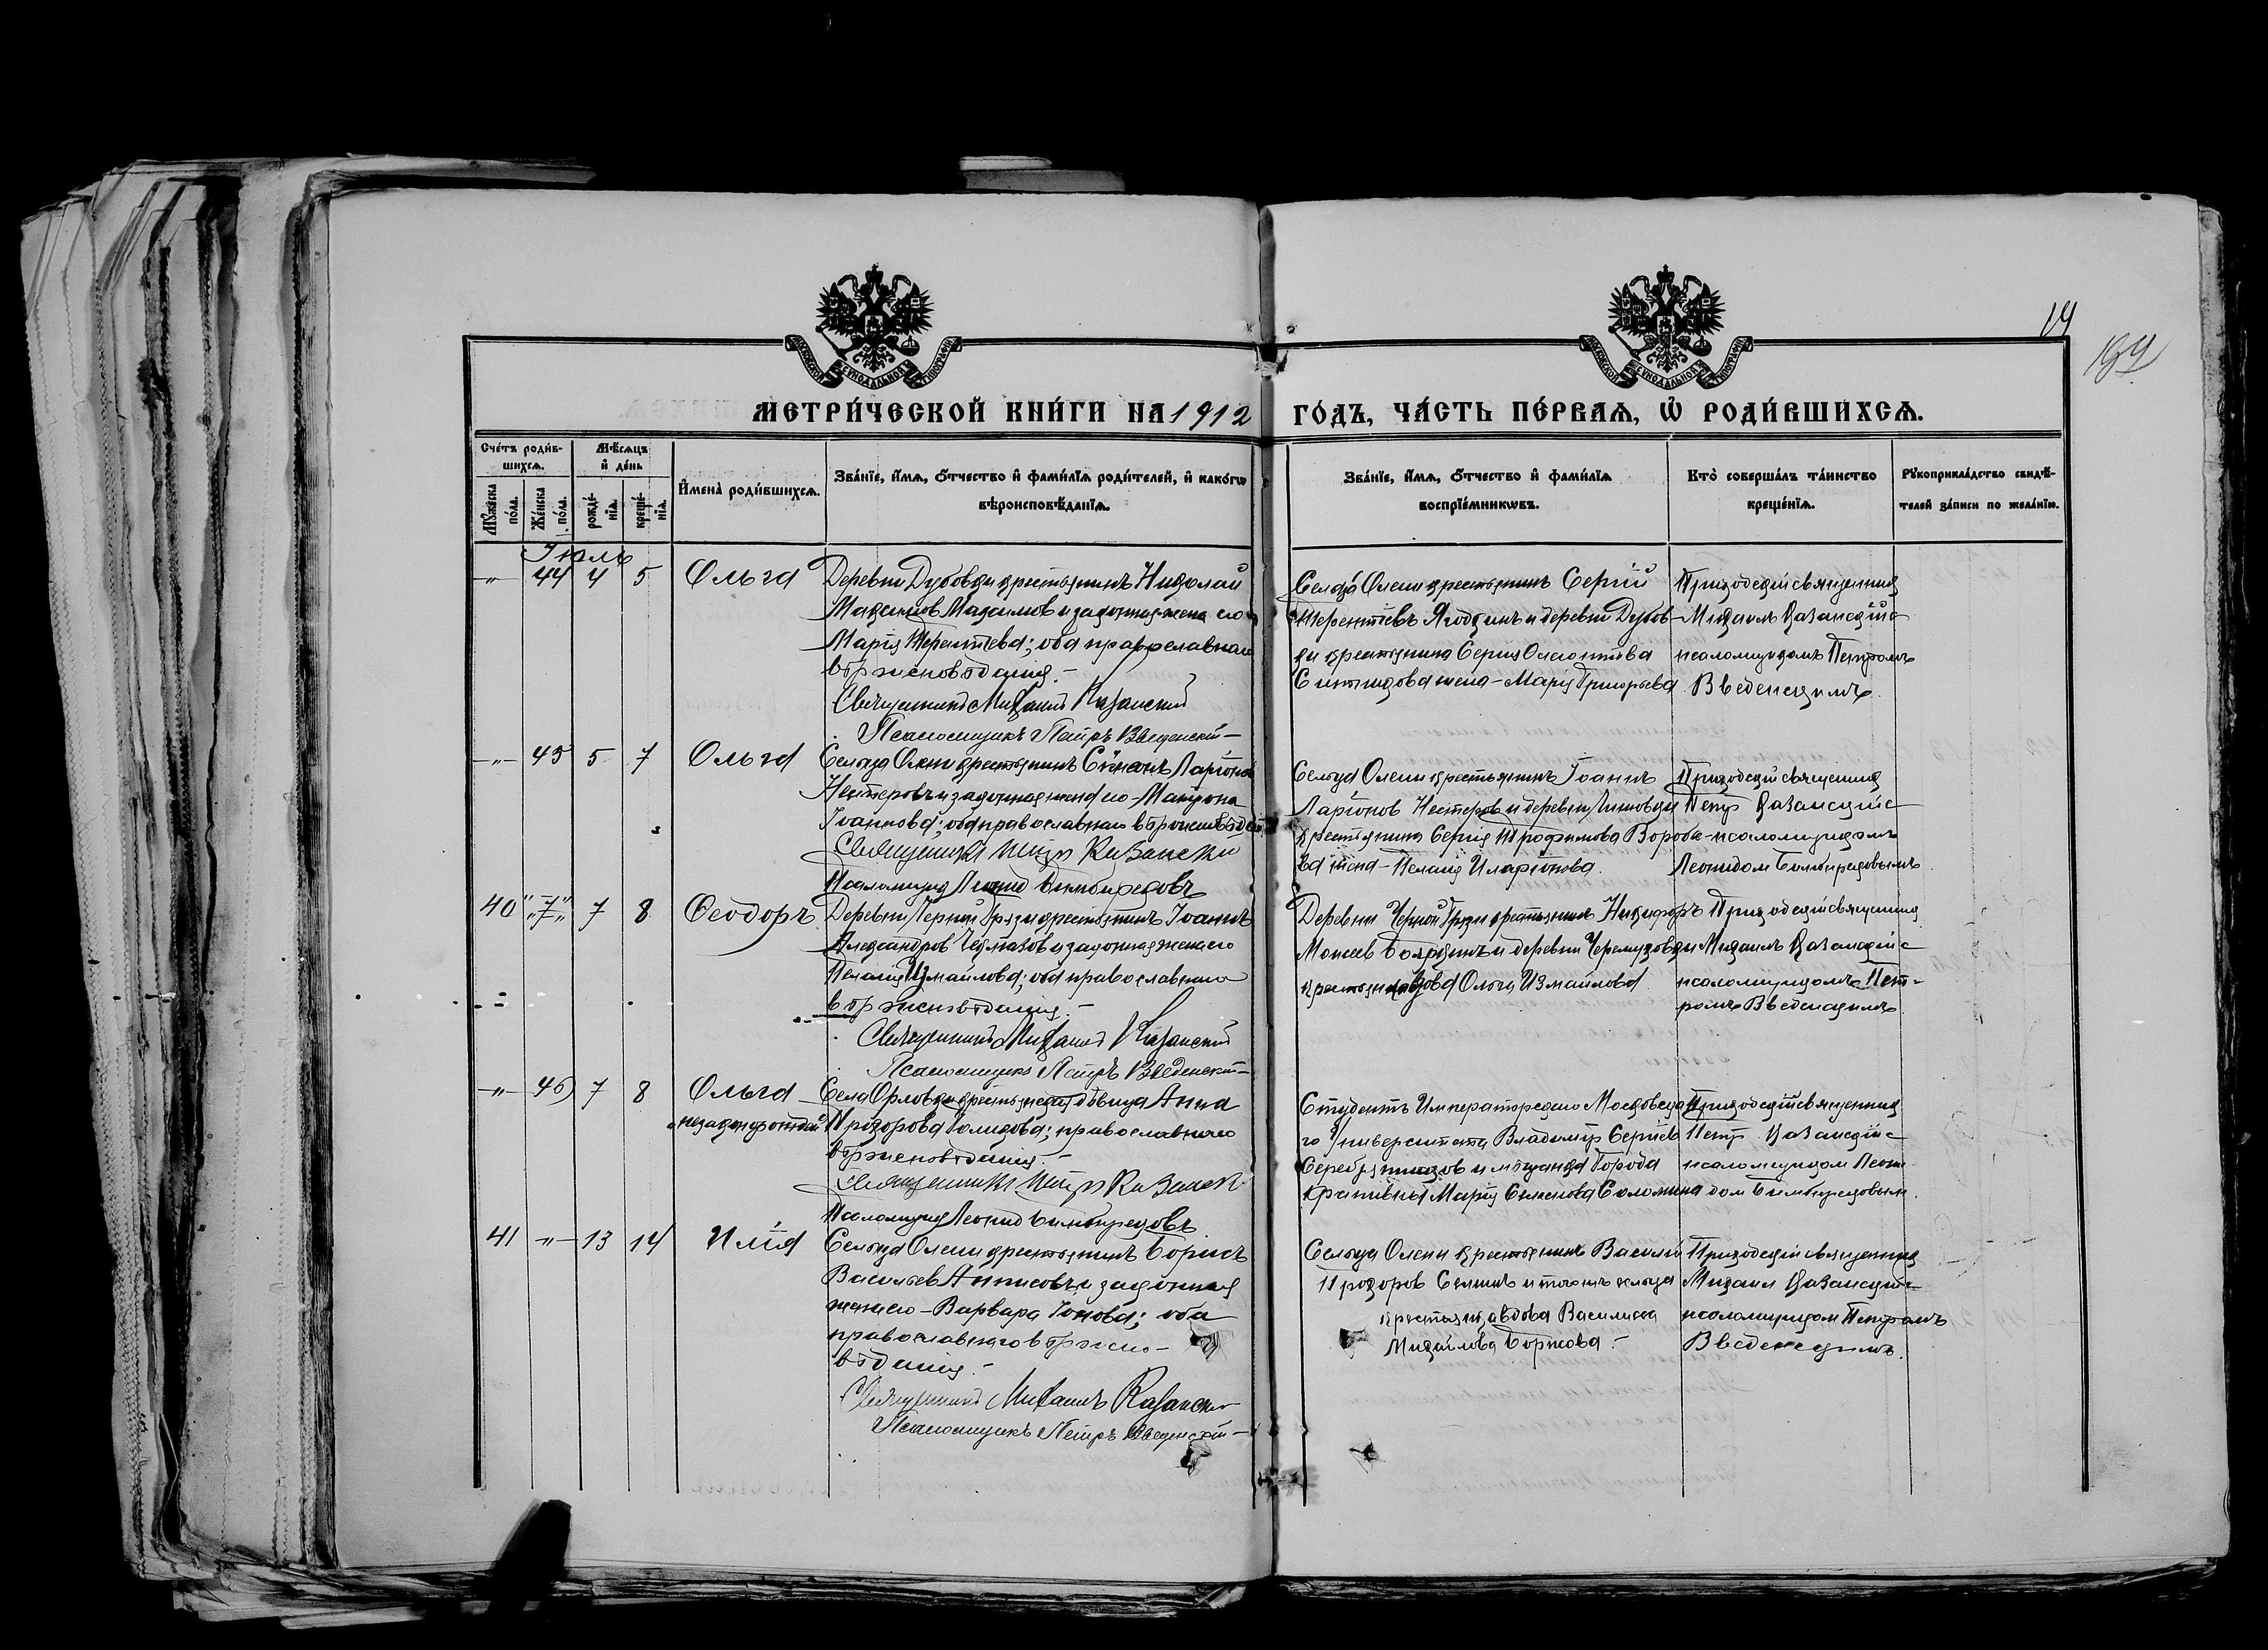 14
194
МЕТРИ́ЧЕСКОЙ КНИ́ГИ НА 1912 ГО́ДЪ, ЧА́СТЬ ПЕ́РВАЯ, Ѡ҆ РОДИ́ВШИХСЯ.
Сче́тъ роди́в-
шихся.
Мѣ́сяцъ
и҆ де́нь
Мꙋ́жеска
по́ла.
Же́нска
по́ла.
рожде́-
нїя.
креще́-
нїя.
И҆мена̀ роди́вшихся.
Зва́нїе, и҆́мя, ѻ҆́тчество и҆ фами́лїя роди́телей, и҆ како́гѡ
вѣроисповѣ́данїя.
Зва́нїе, и҆́мя, ѻ҆́тчество и҆ фами́лїя
воспрїе́мникѡвъ.
Кто̀ соверша́лъ та́инство
креще́нїя.
Рꙋкоприкла́дство свидѣ́-
телей за́писи по жела́нїю.
Іюль
-"- 44 4 5 Ольга
Деревни Дубовки крестьянинъ Николай
Максимов Максимов и законная жена его
Марія Терентіева; оба православнаго
вѣроисповѣданія.-
Священникъ Михаилъ Казанскій
Псаломщикъ Петръ Введенскій-
Сельца Олени крестьянинъ Сергій
Терентіевъ Ягодкинъ и деревни Дубов-
ки крестьянина Сергия
жена - Марія Григорьева
Приходскій священник
Михаилъ Казанскій с
псаломщикомъ Петромъ
Введенскимъ.
-"- 45 5 7 Ольга
Сельца Олени крестьянинъ Симеонъ Ларіонов
Нестеровъ и законная жена его - Матрона
Іоаннова; оба православнаго вѣроисповѣдан
Священникъ Петръ Казанскій
Псаломщик Леонид
Сельца Олени крестьянинъ Іоаннъ
Ларіонов Нестеров и деревни
крестьянина Сергія Трофимова Воробе-
ва жена - Пелагія Иларіонова.
Приходскій священник
Петр Казанскій с
псаломщикомъ
Леонидом
40 "7" "7" 7 8 Ѳеодоръ
Деревни Черной Грязи крестьянинъ Іоаннъ
Александров и законная жена его
Пелагія Измайлова; оба православнаго
вѣроисповѣданія.-
Священникъ Михаилъ Казанскій
Псаломщикъ Петръ Введенскій-
Деревни Черной Грязи крестьянинъ Никифоръ
Моисеев Бояркинъ и деревни
крестьянская вдова Ольга Измайлова
Приходскій священник
Михаилъ Казанскій с
псаломщикомъ Пет-
ромъ Введенскимъ.
-"- 46 7 8 Ольга
"незаконнорожден"
Села Орловки крестьянская дѣвица Анна
Прохорова Голикова; православнаго
вѣроисповѣданія.-
Священникъ Петръ Казанскій
Псаломщик Леонид
Студентъ Императорскаго Московска
го Университета Владимір Сергіев
Серебряников и мѣщанка Города
Крапивны Марія Семенова Соломина
Приходскій священник
Петр Казанскій с
псаломщиком Леони
дом
41 -"- 13 14 Илія
Сельца Олени крестьянинъ Борисъ
Васильев Анисовъ и законная
жена его - Варвара Іонова; оба
православнаго вѣроиспо-
вѣданія.-
Священникъ Михаилъ Казанскій
Псаломщикъ Петръ Введенскій-
Сельца Олени крестьянинъ Василій
Прохоров Семинъ и тогожъ сельца
крестьянска вдова Василиса
Михайлова Борисова.-
Приходскій священник
Михаил Казанскій с
псаломщиком Петромъ
Введенскимъ.